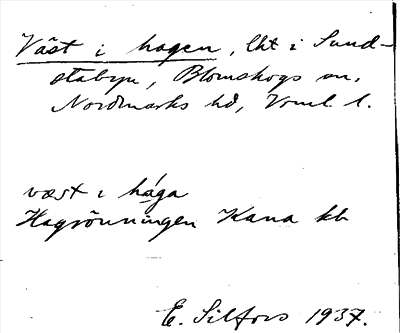 Väst i hagen, lht i Sund-
stabyn, Blomskogs sn,
Nordmarks hd, Vrml. l.
væst i håga
Hagrönningen Kana kb
E. Silfors 1937.